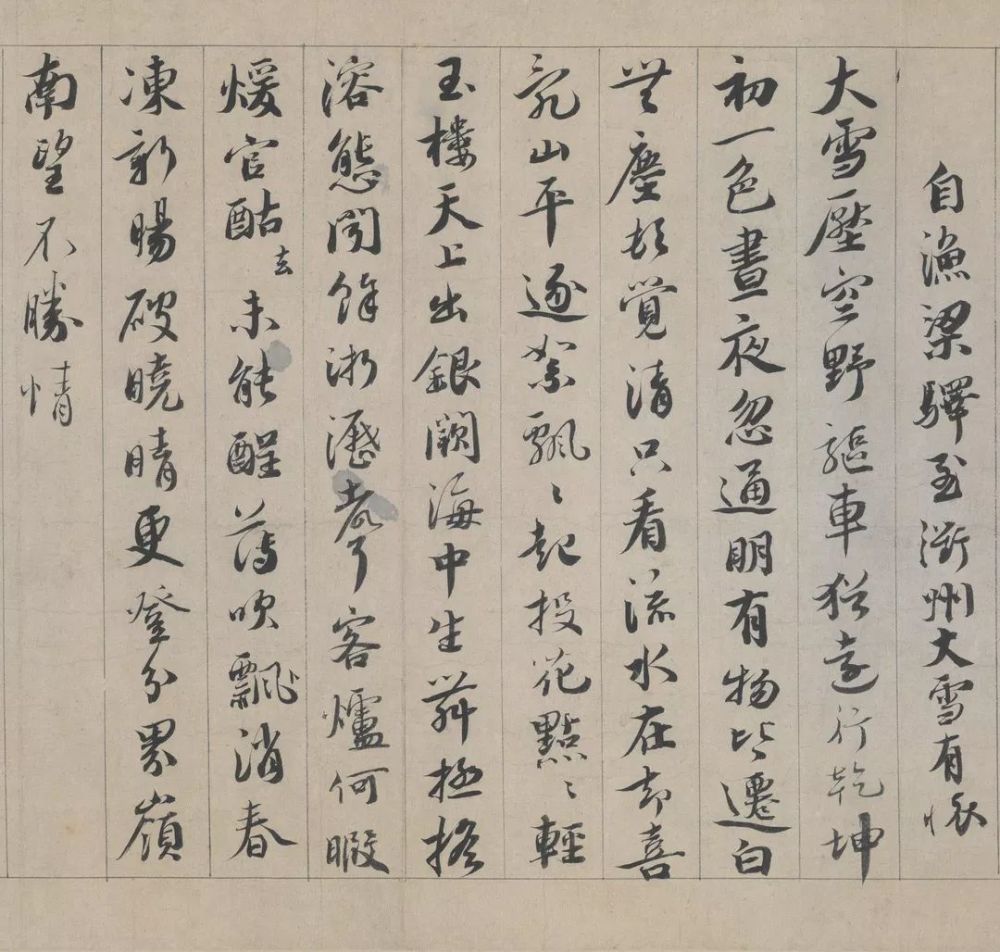 自漁梁驛至衢州大雪有懷
大雪壓空野驅車猶遠行乾坤
初一色晝夜忽通明有物皆遷白
無塵頓覺清只看流水在却喜
亂山平逐絮飄〻起投花點〻輕
玉樓天上出銀闕海中生舞極摇
溶態聞餘淅瀝聲客爐何暇
煖官酤去未能醒薄吹飄消春
凍新暘破曉晴更登分界嶺
南望不勝情